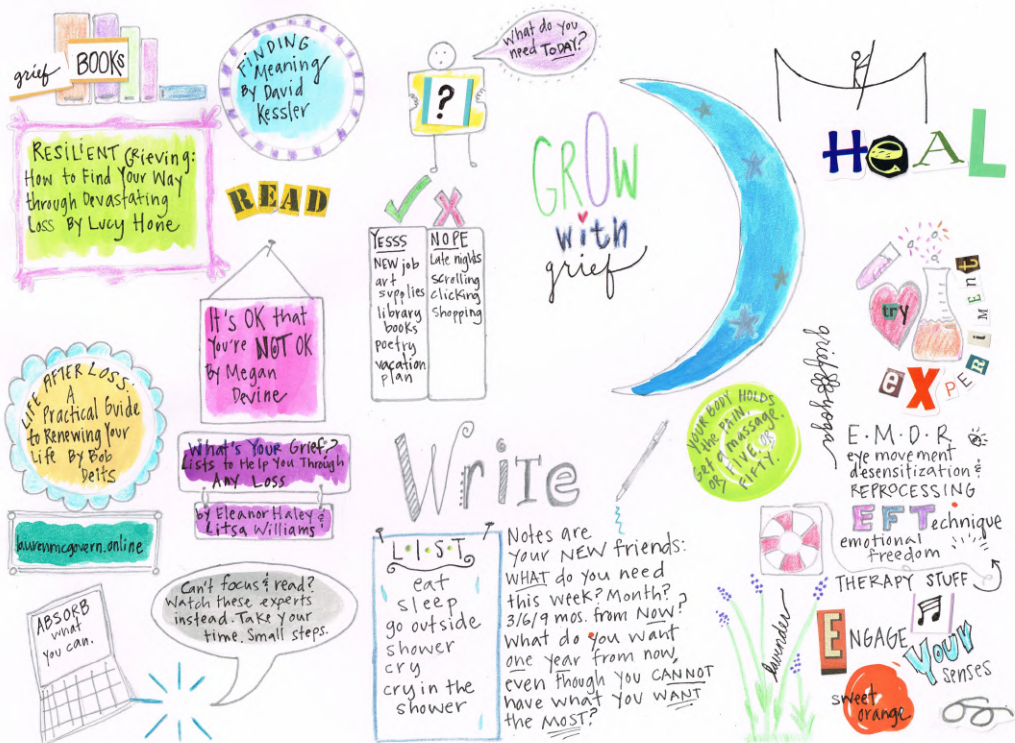 grief BOOKS
FINDING
Meaning
By David
Kessler
RESILIENT Grieving:
How to Find Your Way
through Devastating
Loss By Lucy Hone
READ
It's OK that
You're NOT OK
By Megan
Devine
LIFE AFTER LOSS:
A
Practical Guide
to Renewing Your
Life By Bob
Deits
What's Your Grief?
Lists to Help You Through
Any Loss
by Eleanor Haley &
Litsa Williams
laurenmcgovern.online
ABSORB
what
you can.
Can't focus & read?
Watch these experts
instead. Take your
time. Small steps.
What do you
need TODAY?
?
YESSS
NEW job
art
supplies
library
books
poetry
vacation
plan
NOPE
Late nights
scrolling
clicking
shopping
GROW
with
grief
Write
L.I.S.T
eat
sleep
go outside
shower
cry
cry in the
shower
Notes are
your NEW friends:
WHAT do you need
this week? Month?
3/6/9 mos. from NOW?
What do you want
one year from now,
even though you CANNOT
have what you WANT
the MOST?
HEAL
try
EXPERIMENT
grief yoga
YOUR BODY HOLDS
the PAIN.
Get a massage.
OR FIVE. OR
FIFTY.
E.M.D.R
eye movement
desensitization &
REPROCESSING
EFTechnique
emotional
freedom
THERAPY STUFF
lavender
ENGAGE
YOUR
senses
sweet
orange